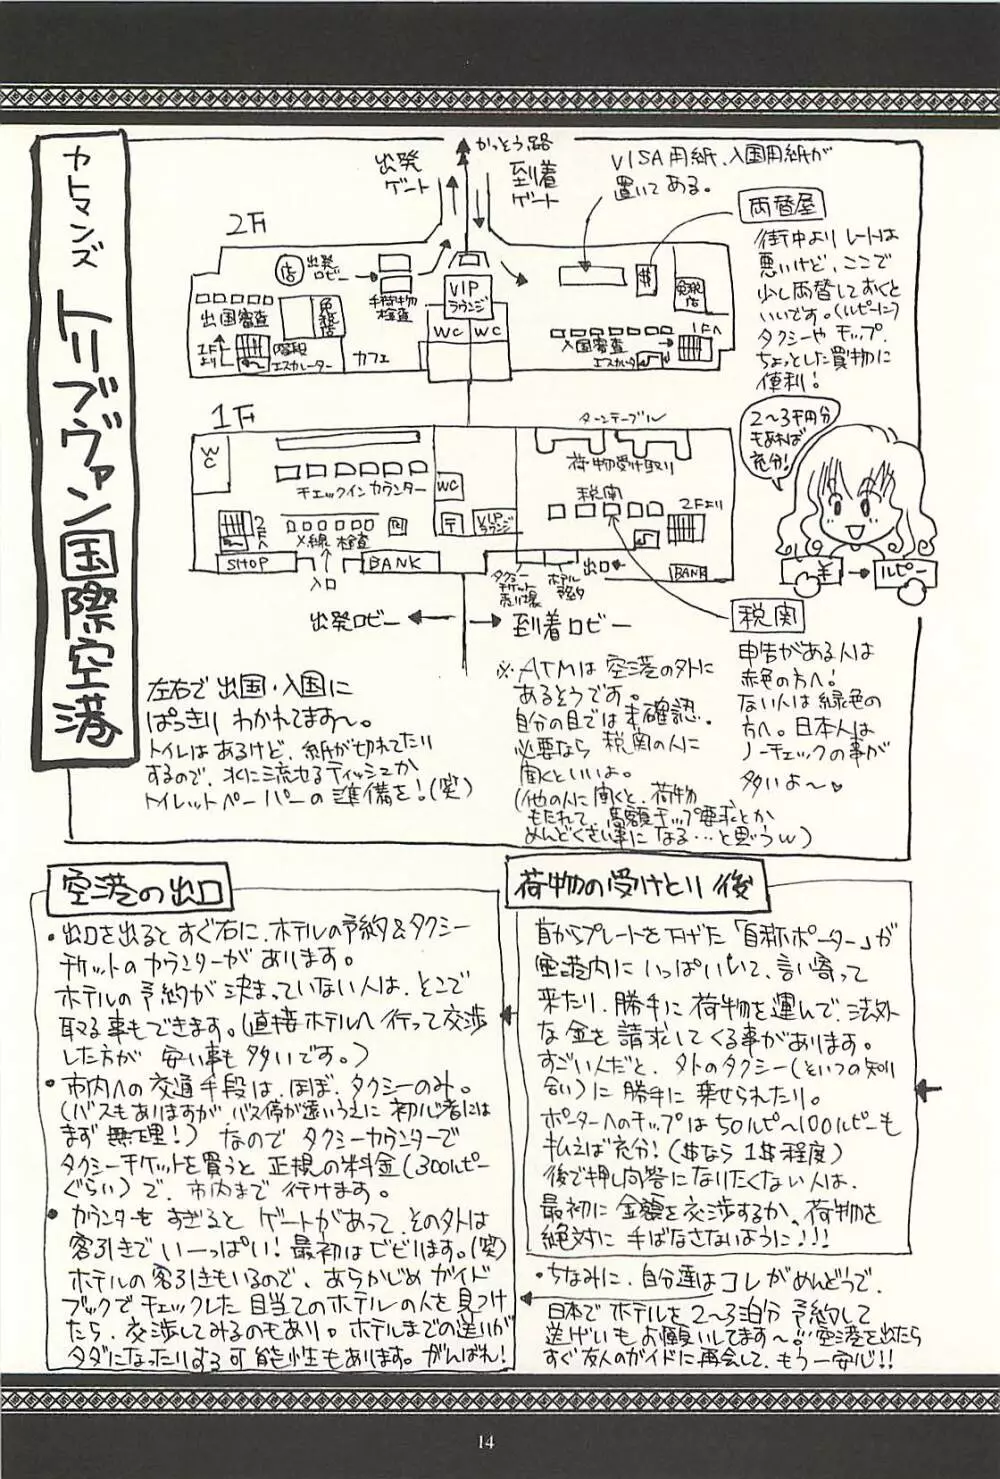 カトマンズ
トリブヴァン国際空港
かっとう路
出発
ゲート
到着
ゲート
VISA用紙、入国用紙が
置いてある。
両替屋
街中よりレートは
悪いけど、ここで
少し両替しておくと
いいです。(ルピーに)
タクシーやチップ、
ちょっとした買物に
便利!
2〜3千円分
もあれば
充分!
¥
ルピー
2F
店
出発
ロビー
手荷物
検査
VIP
ラウンジ
WC
WC
$
免税
店
出国審査
免税店
1F
より
階段
エスカレーター
カフェ
入国審査
エスカレータ
1Fへ
1F
WC
チェックインカウンター
WC
ターンテーブル
荷物受け取り
税関
2Fへ
X線検査
〒
VIP
ラウンジ
2Fより
SHOP
入口
BANK
タクシー
チケット
売り場
ホテル
予約
出口
BANK
出発ロビー
到着ロビー
税関
申告がある人は
赤色の方へ!
ない人は緑色の
方へ。日本人は
ノーチェックの事が
多いよ〜♥
左右で出国・入国に
ぱっきりわかれてます〜。
トイレはあるけど、紙が切れてたり
するので、水に流せるティッシュか
トイレットペーパーの準備を!(笑)
※ATMは空港の外に
あるそうです。
自分の目ではまだ未確認。
必要なら税関の人に
聞くといいよ。
(他の人に聞くと、荷物
もたれて、高額チップ要求とか
めんどくさい事になる…と思うw)
空港の出口
・出口を出るとすぐ右に、ホテルの予約&タクシー
チケットのカウンターがあります。
ホテルの予約が決まっていない人は、そこで
取る事もできます。(直接ホテルへ行って交渉
した方が安い事も多いです。)
・市内への交通手段は、ほぼ、タクシーのみ。
(バスもありますがバス停が遠いうえに初心者には
まず無理!)なのでタクシーカウンターで
タクシーチケットを買うと正規の料金(300ルピー
ぐらい)で、市内まで行けます。
・カウンターもすぎるとゲートがあって、その外は
客引きでいーっぱい!最初はビビります。(笑)
ホテルの客引きもいるので、あらかじめガイド
ブックでチェックした目当てのホテルの人を見つけ
たら、交渉してみるのもあり。ホテルまでの送りが
タダになったりする可能性もあります。がんばれ!
荷物の受けとり後
首からプレートを下げた「自称ポーター」が
空港内にいっぱいいて、言い寄って
来たり、勝手に荷物を運んで、法外
な金を請求してくる事があります。
すごい人だと、外のタクシー(といつの知り
合い)に勝手に乗せられたり。
ポーターへのチップは50ルピー〜100ルピーも
払えば充分!($なら1$程度)
後で押し問答になりたくない人は、
最初に金額を交渉するか、荷物を
絶対に手ばなさないように!!!
・ちなみに、自分達はコレがめんどうで、
日本でホテルを2〜3泊分予約して
送迎もお願いしてます〜。空港を出たら
すぐ友人のガイドに再会して、もう一安心!!
14